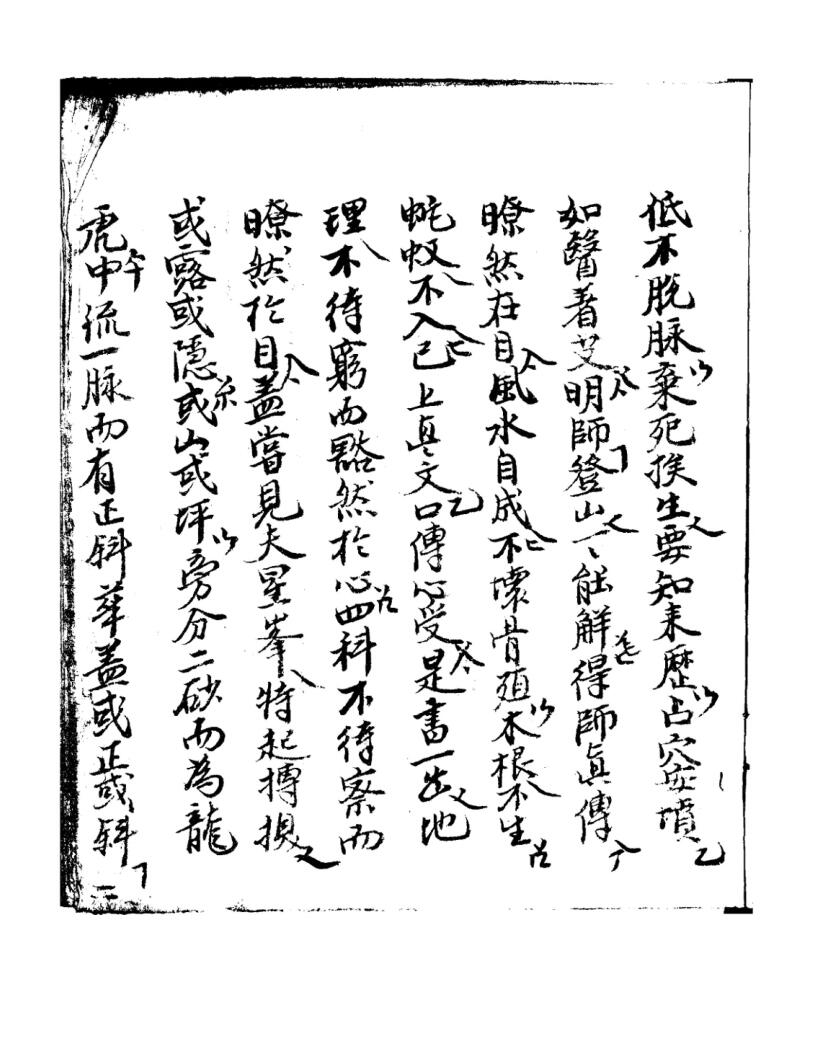 低不脫脉棄死挨生要知来歷占穴安墳
如醫着艾明師登山一〻能解得師眞傳
暸然在目風水自成不壞骨殖木根不生
蛇蚁不入已上真文口傳心受是書一出地
理不待窮而豁然於心四科不待察而
暸然於目盖嘗見夫星峯特起摶換
或露或隱或山或坪旁分二砂而為龍
虎中流一脉而有正斜華盖或正或斜
二